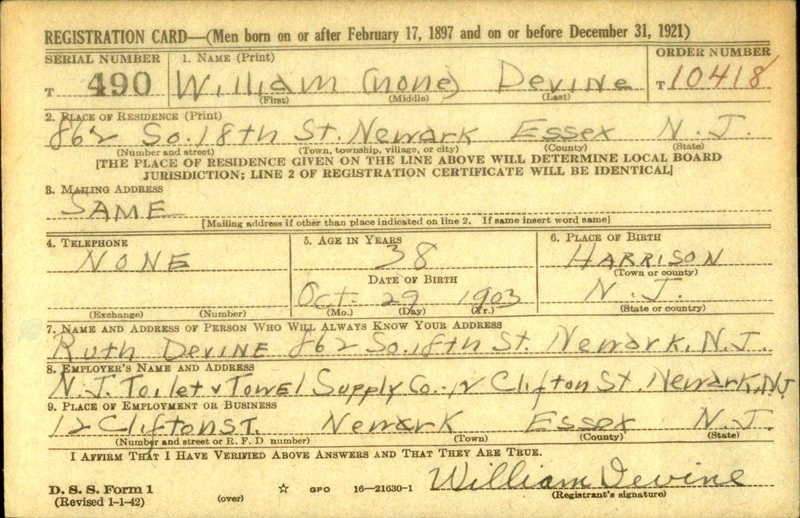 REGISTRATION CARD—(Men born on or after February 17, 1897 and on or before December 31, 1921)
SERIAL NUMBER 1. NAME (Print) ORDER NUMBER
T 490 William (none) Devine T 10418
(First) (Middle) (Last)
2. PLACE OF RESIDENCE (Print)
862 So. 18th St. Newark Essex N. J.
(Number and street) (Town, township, village, or city) (County) (State)
[THE PLACE OF RESIDENCE GIVEN ON THE LINE ABOVE WILL DETERMINE LOCAL BOARD
JURISDICTION; LINE 2 OF REGISTRATION CERTIFICATE WILL BE IDENTICAL]
3. MAILING ADDRESS
SAME
[Mailing address if other than place indicated on line 2. If same insert word same]
4. TELEPHONE 5. AGE IN YEARS 6. PLACE OF BIRTH
NONE 38 HARRISON
(Town or county)
DATE OF BIRTH
Oct. 29 1903 N. J.
(Exchange) (Number) (Mo.) (Day) (Yr.) (State or country)
7. NAME AND ADDRESS OF PERSON WHO WILL ALWAYS KNOW YOUR ADDRESS
Ruth Devine 862 So. 18th St. Newark, N. J.
8. EMPLOYER'S NAME AND ADDRESS
N. J. Toilet & Towel Supply Co. - 12 Clifton St. Newark, NJ
9. PLACE OF EMPLOYMENT OR BUSINESS
12 Clifton ST. Newark Essex N. J.
(Number and street or R. F. D number) (Town) (County) (State)
I AFFIRM THAT I HAVE VERIFIED ABOVE ANSWERS AND THAT THEY ARE TRUE.
William Devine
D. S. S. Form 1 (over) GPO 16—21630-1 (Registrant's signature)
(Revised 1-1-42)